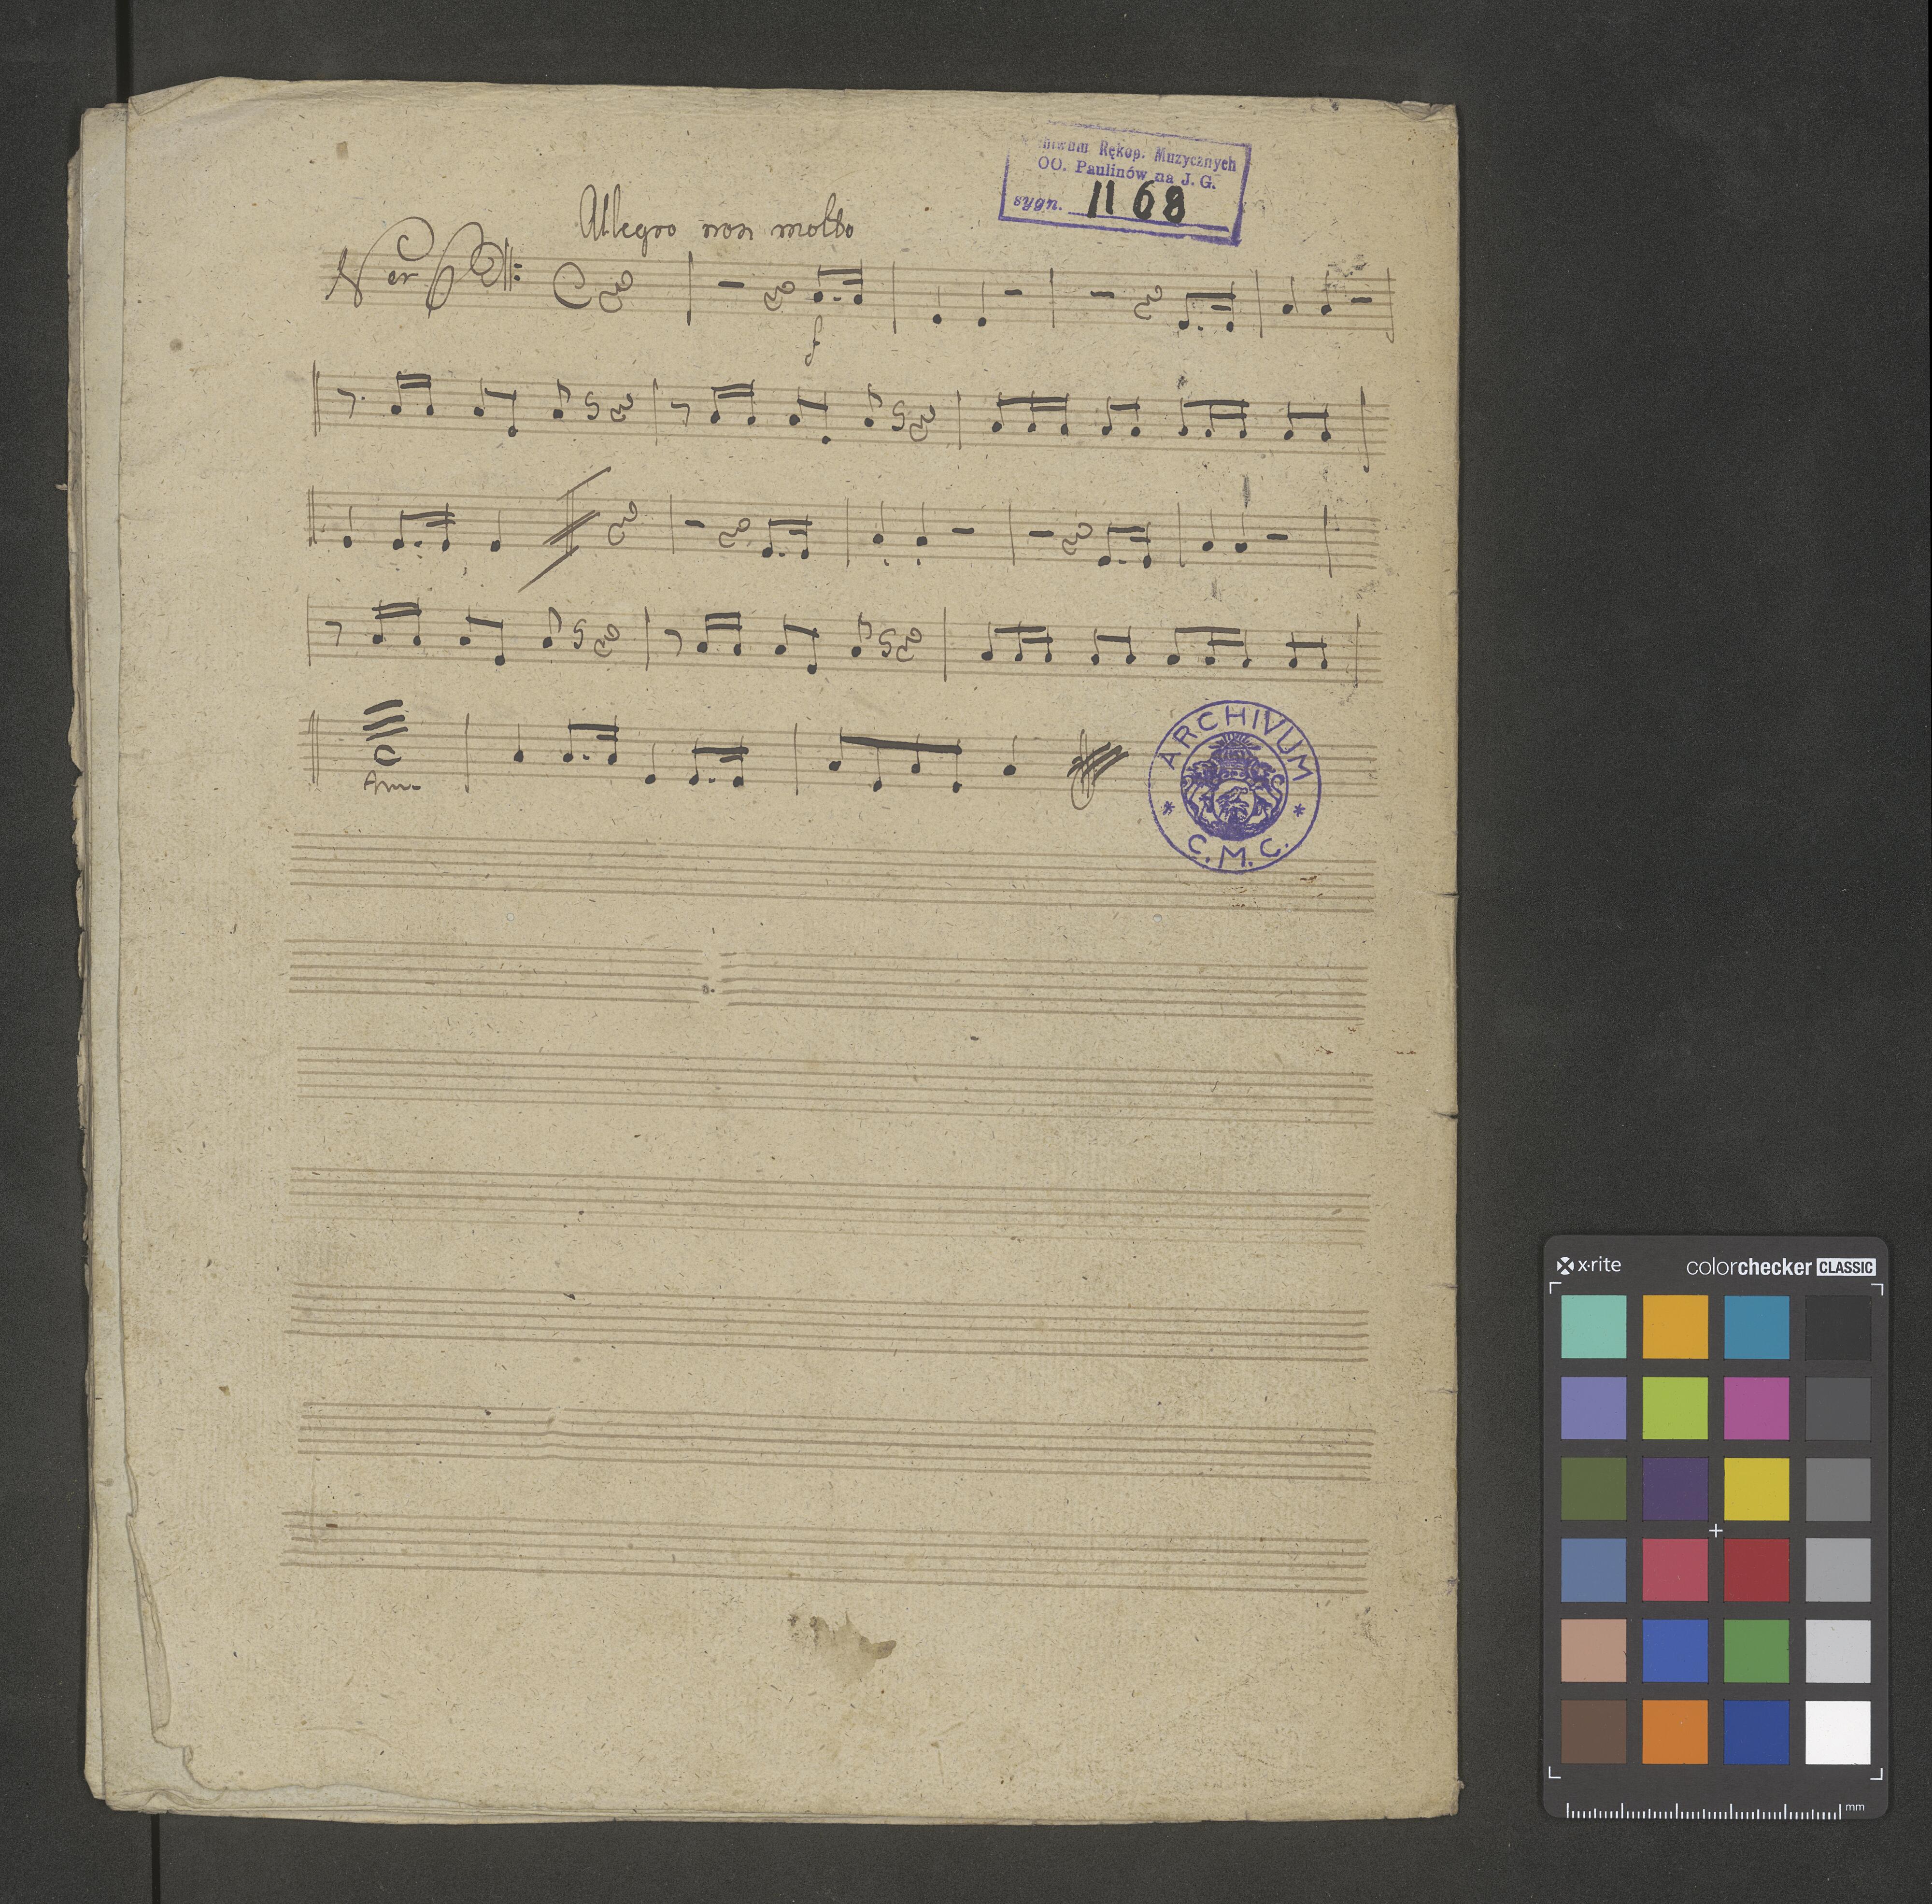 Rękop. Muzycznych
OO. Paulinów na J. G.
sygn. 1168
Allegro non molto
f
ARCHIVUM
* C. M. C. *
x·rite colorchecker CLASSIC
mm